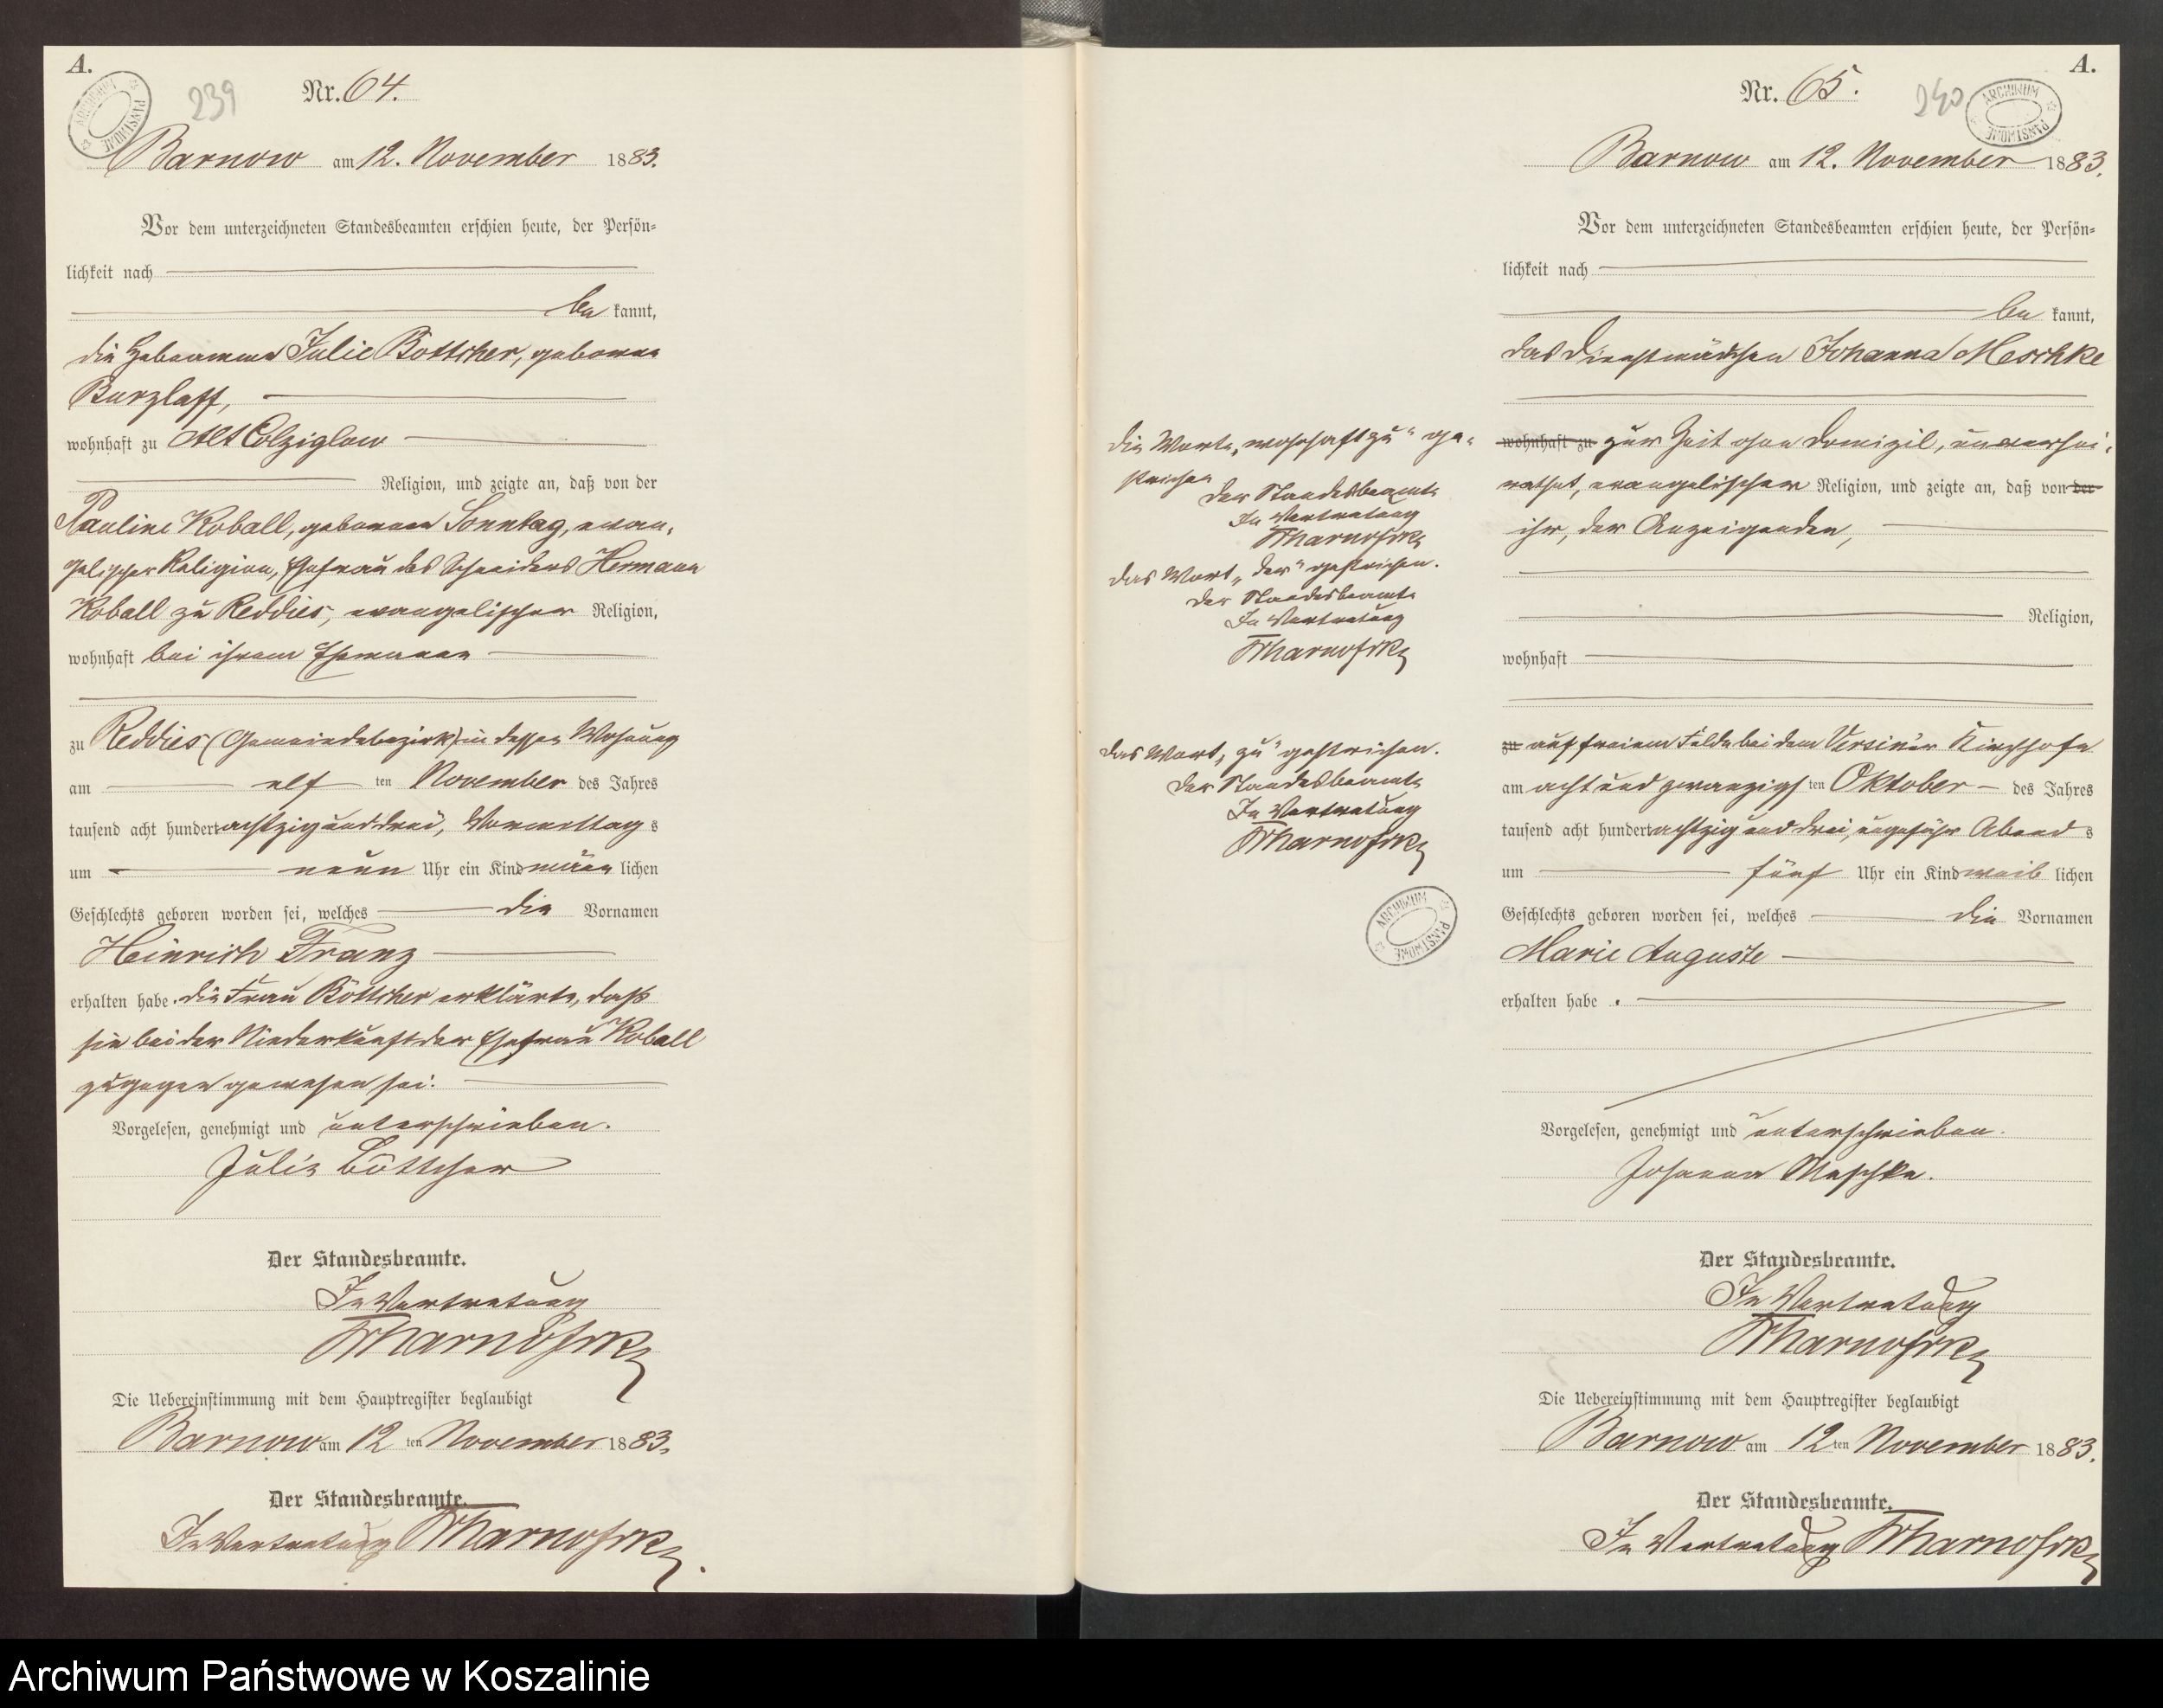 A.
ARCHIWUM PAŃSTWOWE
239
Nr. 64.
Barnow am 12. November 1883.
Vor dem unterzeichneten Standesbeamten erschien heute, der Persön-
lichkeit nach
be kannt,
die Hebeamme Julie Böttcher, geborene
Burzlaff,
wohnhaft zu Alt Colziglow
Religion, und zeigte an, daß von der
Pauline Koball, geborenen Sonntag, evan-
gelischer Religion, Ehefrau des Schneiders Hermann
Koball zu Reddies, evangelischer Religion,
wohnhaft bei ihrem Ehemann
zu Reddies (Gemeindebezirk) in dessen Wohnung
am elf ten November des Jahres
tausend acht hundert achtzig und drei, Vormittag s
um neun Uhr ein Kind männ lichen
Geschlechts geboren worden sei, welches die Vornamen
Heinrich Franz
erhalten habe. Die Frau Böttcher erklärte, daß
sie bei der Niederkunft der Ehefrau Koball
zugegen gewesen sei.
Vorgelesen, genehmigt und unterschrieben.
Julie Böttcher
Der Standesbeamte.
In Vertretung
Die Uebereinstimmung mit dem Hauptregister beglaubigt
Barnow am 12 ten November 1883.
Der Standesbeamte.
In Vertretung
A.
240
ARCHIWUM PAŃSTWOWE
Nr. 65.
Barnow am 12. November 1883.
Vor dem unterzeichneten Standesbeamten erschien heute, der Persön-
lichkeit nach
be kannt,
das Dienstmädchen Johanna Meschke
wohnhaft zu zur Zeit ohne Domizil, unverhei-
rathet, evangelischer Religion, und zeigte an, daß von der
ihr, der Anzeigenden,
Religion,
wohnhaft
zu auf freiem Felde bei dem Versiner Kirchhofe
am acht und zwanzigs ten Oktober des Jahres
tausend acht hundert achtzig und drei, ungefähr Abend s
um fünf Uhr ein Kind weib lichen
Geschlechts geboren worden sei, welches die Vornamen
Marie Auguste
erhalten habe.
Vorgelesen, genehmigt und unterschrieben.
Johanna Meschke.
Der Standesbeamte.
In Vertretung
Die Uebereinstimmung mit dem Hauptregister beglaubigt
Barnow am 12 ten November 1883.
Der Standesbeamte.
In Vertretung
Die Worte „wohnhaft zu“ ge-
strichen
Der Standesbeamte
In Vertretung
Das Wort „der“ gestrichen.
Der Standesbeamte
In Vertretung
Das Wort „zu“ gestrichen.
Der Standesbeamte
In Vertretung
ARCHIWUM PAŃSTWOWE
Archiwum Państwowe w Koszalinie